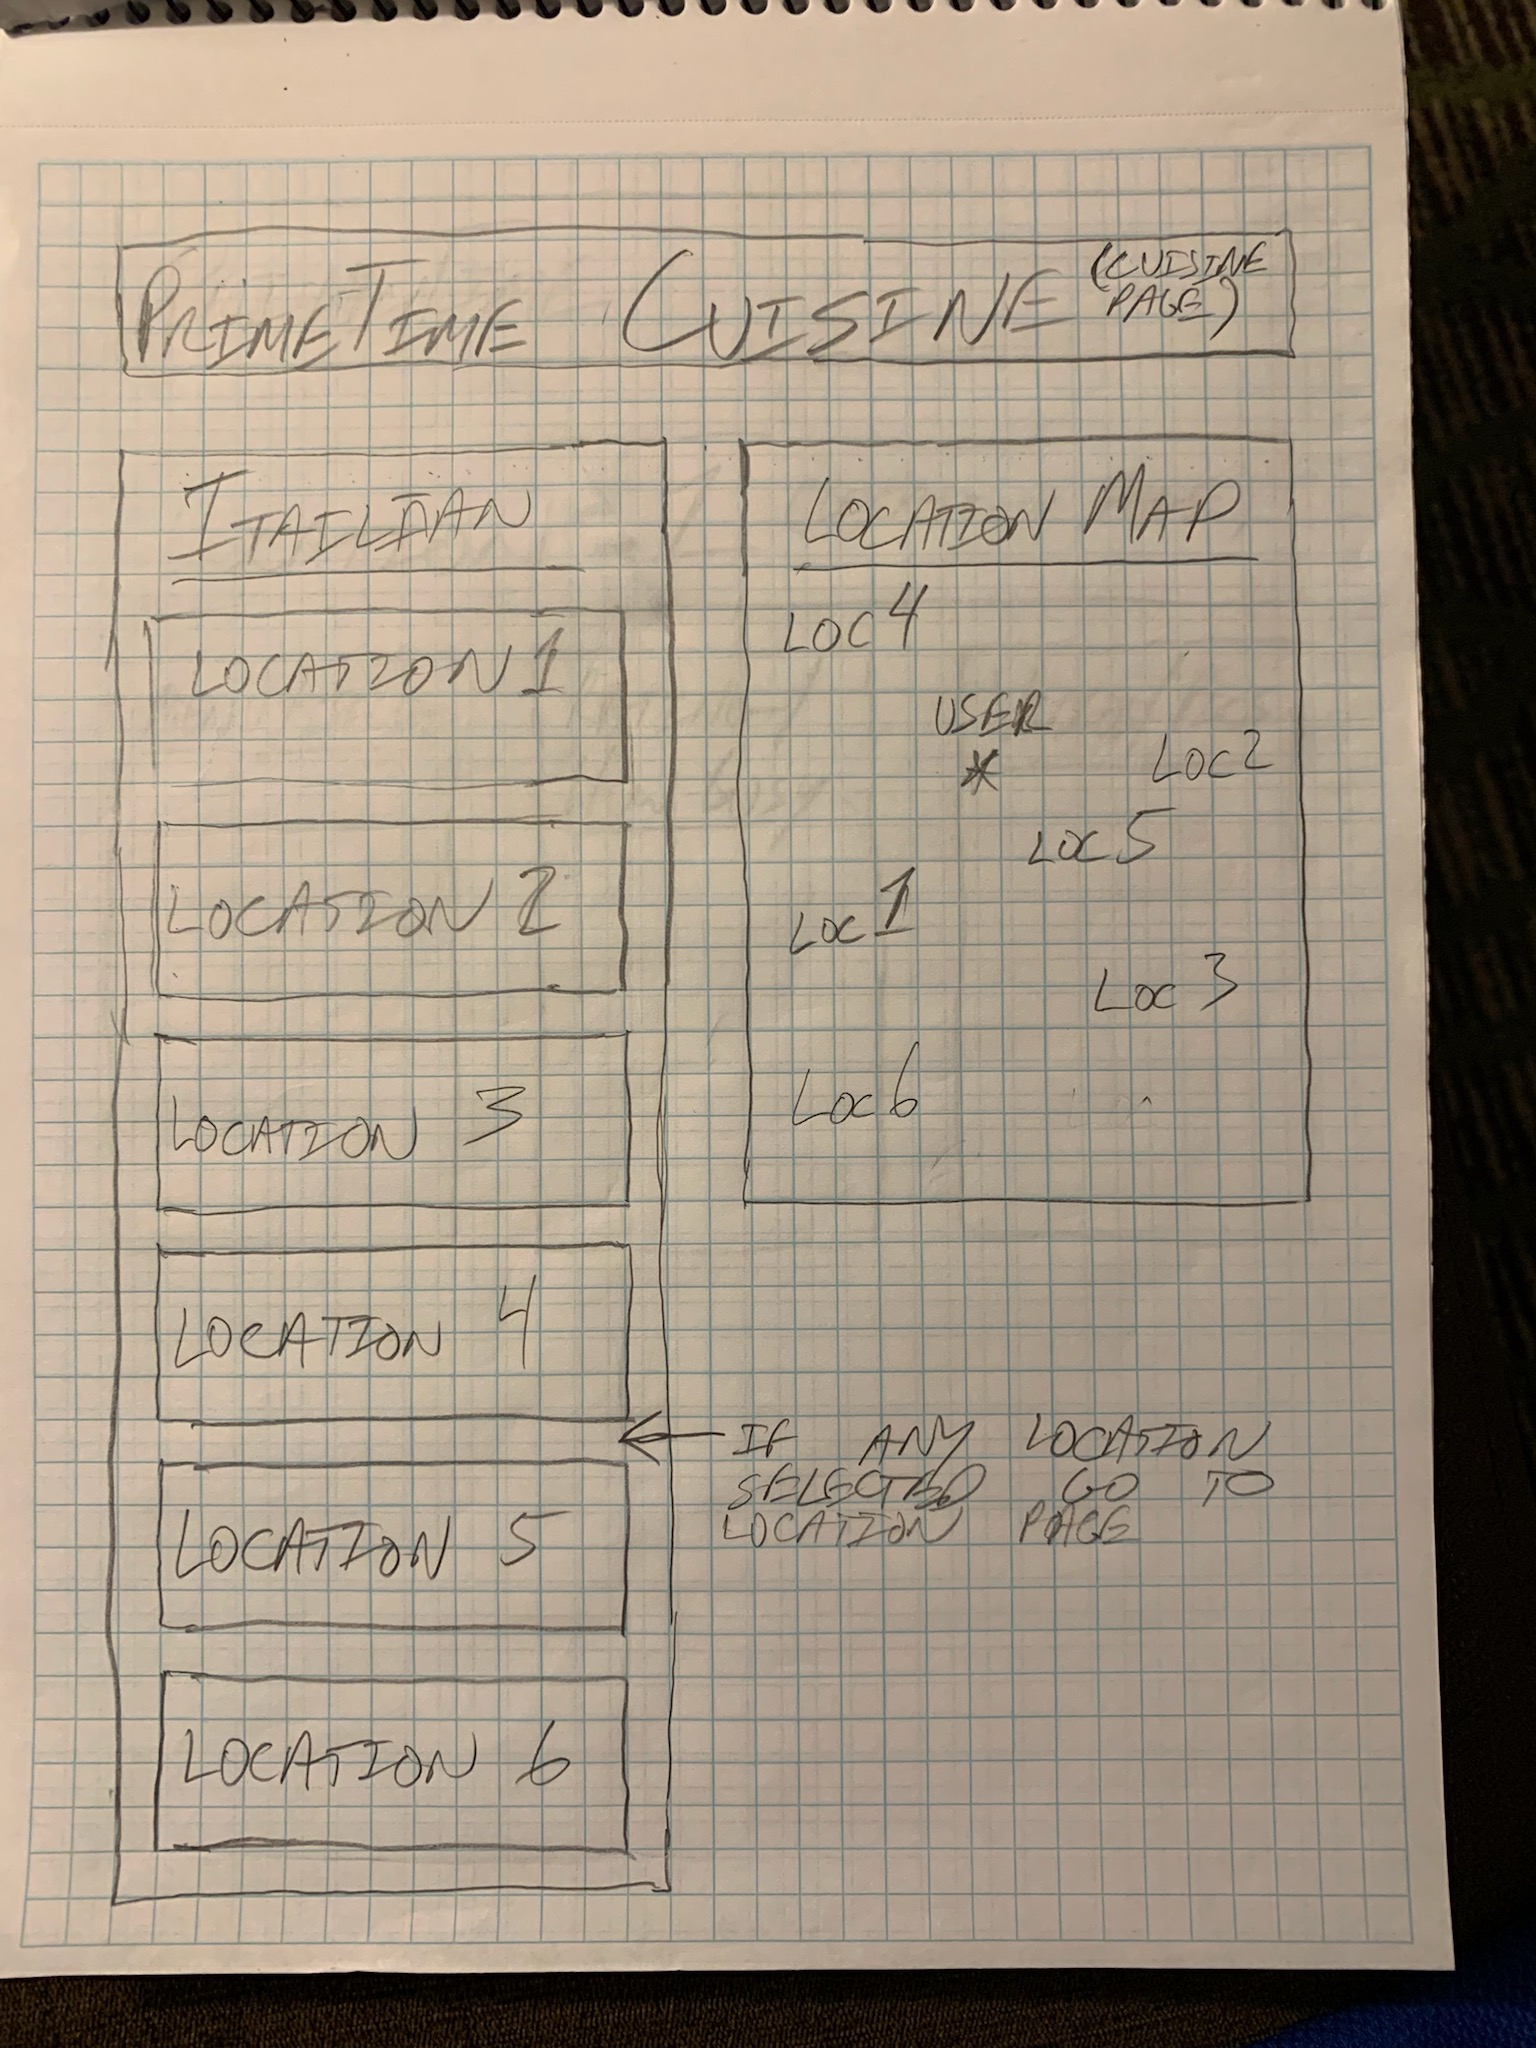 PRIMETIME CUISINE (CUISINE
PAGE)
ITAILIAN
LOCATION 1
LOCATION 2
LOCATION 3
LOCATION 4
LOCATION 5
LOCATION 6
LOCATION MAP
LOC 4
USER
*
LOC 2
LOC 5
LOC 1
LOC 3
LOC 6
IF ANY LOCATION
SELECTED GO TO
LOCATION PAGE